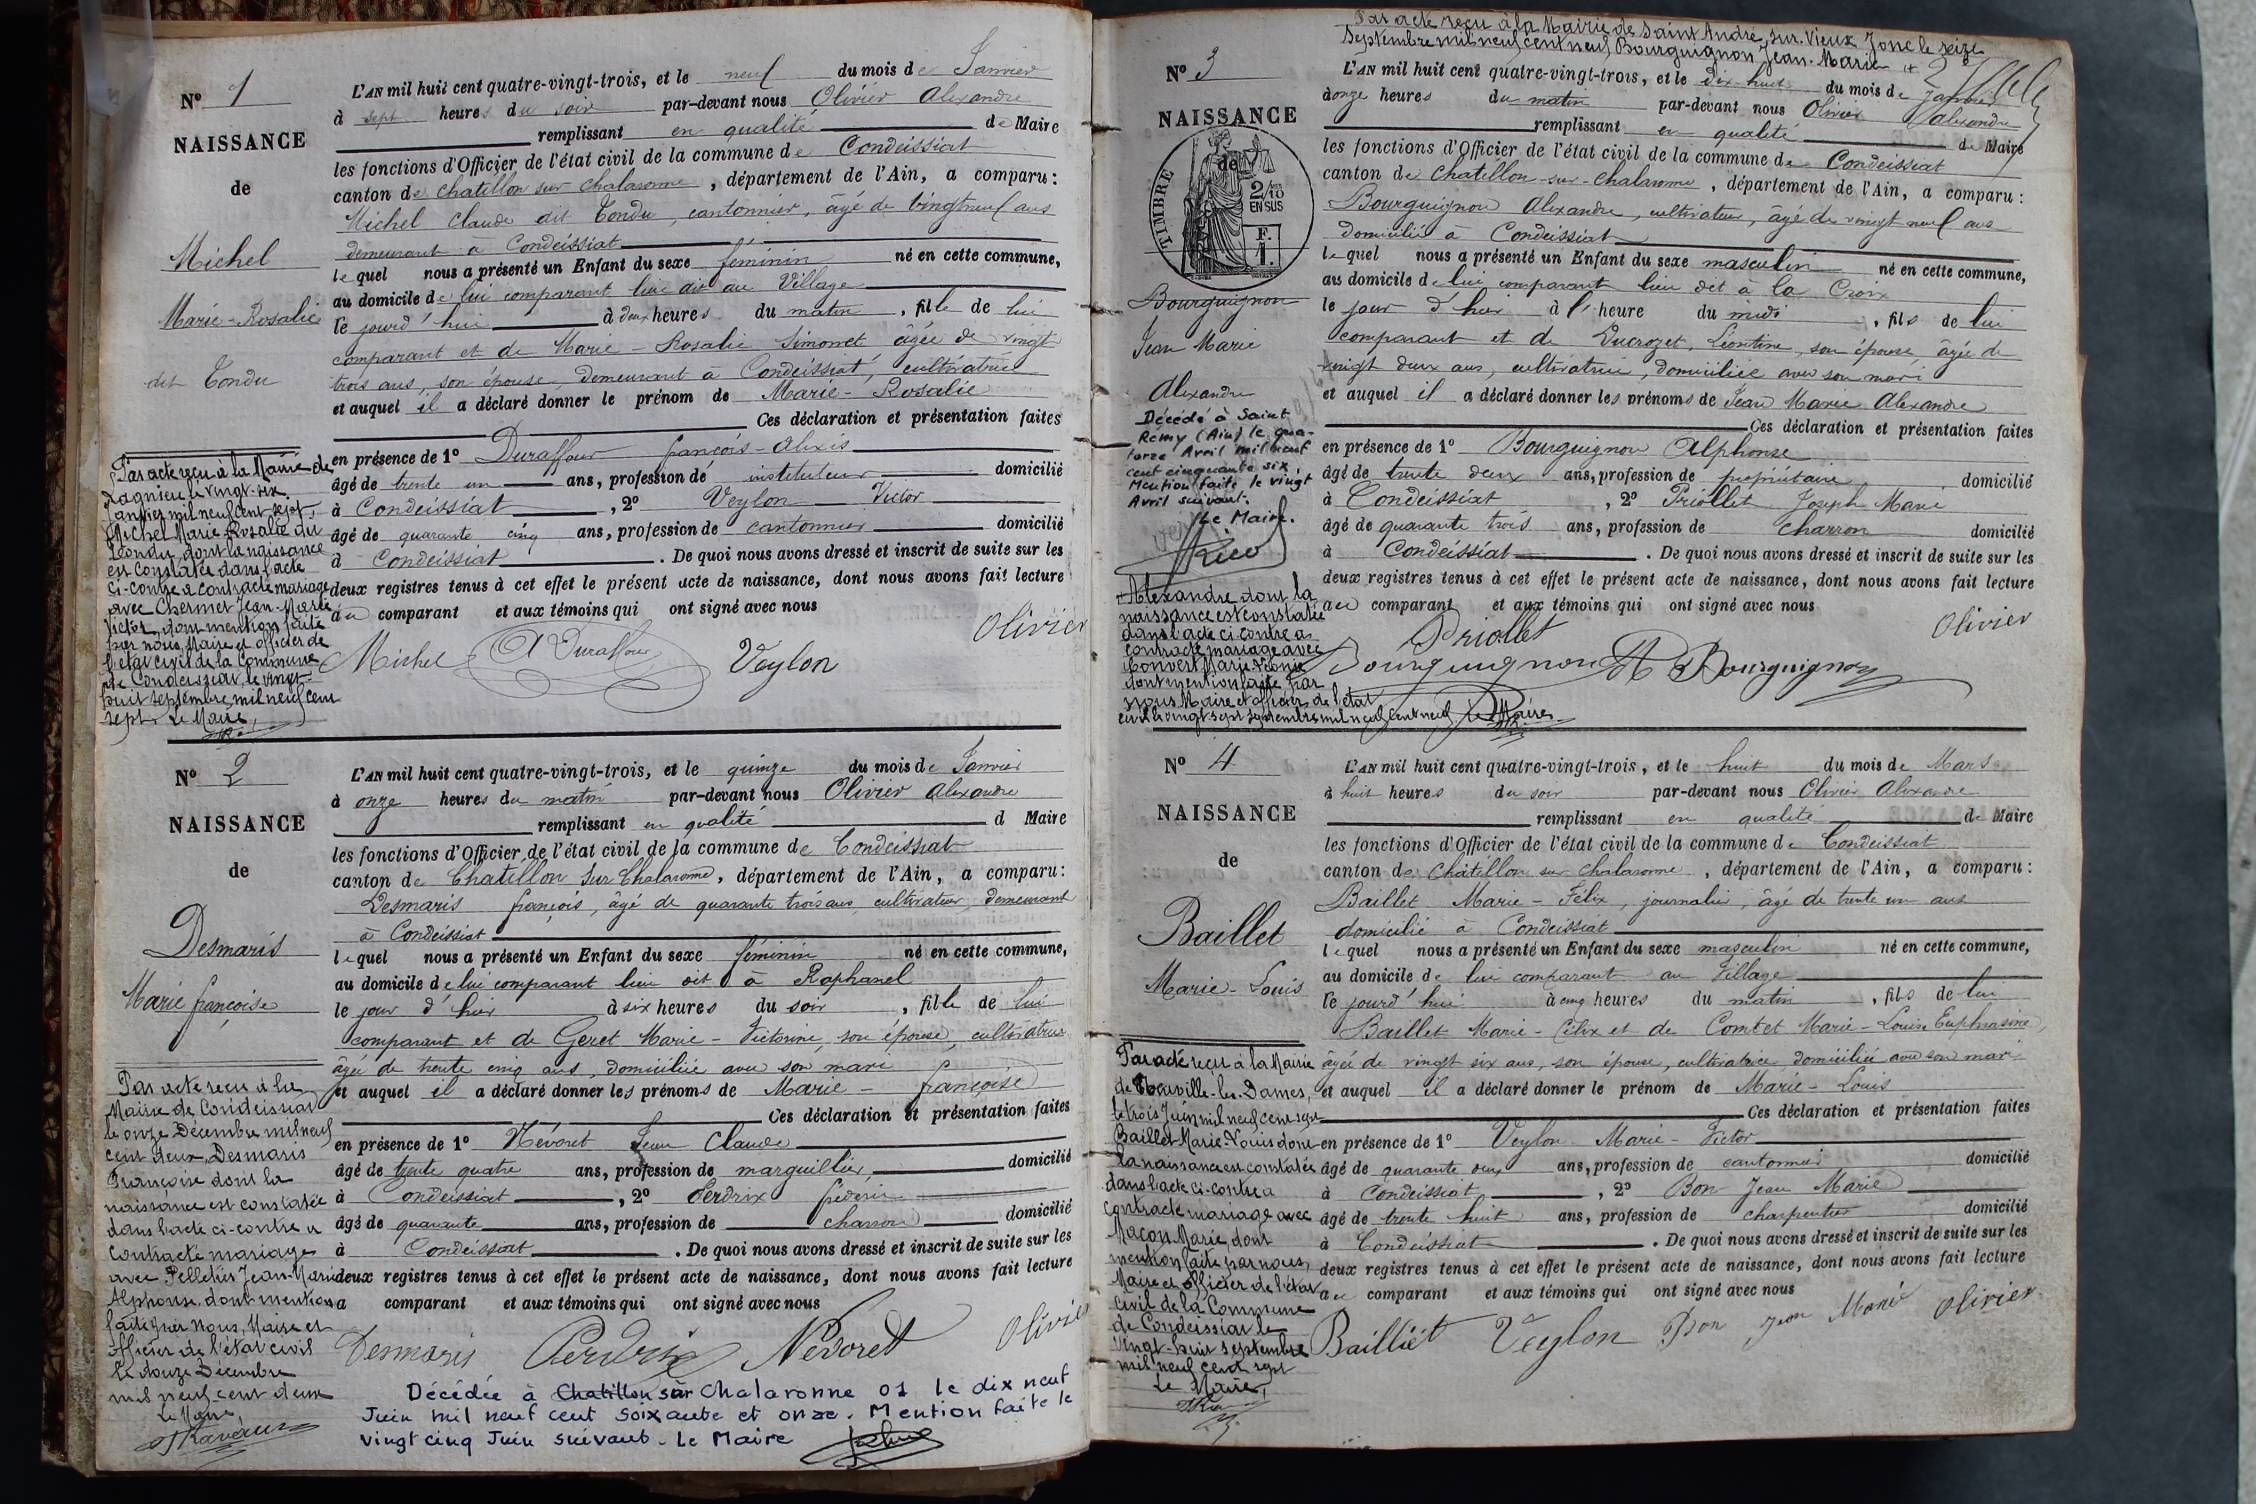 Nº 1
NAISSANCE
de
Michel
Marie-Rosalie
dit Tondu
L'AN mil huit cent quatre-vingt-trois, et le neuf du mois de Janvier
à sept heures du soir par-devant nous Olivier Alexandre
remplissant en qualité de Maire
les fonctions d'Officier de l'état civil de la commune de Condeissiat
canton de Chatillon sur Chalaronne, département de l'Ain, a comparu:
Michel Claude dit Tondu, cantonnier, âgé de vingt neuf ans
demeurant a Condeissiat
lequel nous a présenté un Enfant du sexe féminin né en cette commune,
au domicile de lui comparant lieu dit au Village
le jourd'hui à deux heures du matin, fille de lui
comparant et de Marie-Rosalie Simonet âgée de vingt
trois ans, son épouse, demeurant à Condeissiat, cultivatrice
et auquel il a déclaré donner le prénom de Marie-Rosalie
Ces déclaration et présentation faites
en présence de 1º Duraffour françois-Alexis
âgé de trente un ans, profession de instituteur domicilié
à Condeissiat, 2º Veylon Victor
âgé de quarante cinq ans, profession de cantonnier domicilié
à Condeissiat. De quoi nous avons dressé et inscrit de suite sur les
deux registres tenus à cet effet le présent acte de naissance, dont nous avons fait lecture
au comparant et aux témoins qui ont signé avec nous
Michel A Duraffour Veylon Olivier
Par acte reçu à la Mairie de
le vingt-six
Janvier mil neuf cent sept,
Michel Marie Rosalie dit
Tondu, dont la naissance
est constatée dans l'acte
ci-contre a contracté mariage
avec Chermet Jean-Marie
Victor, dont mention faite
par nous, Maire et officier de
l'état civil de la Commune
de Condeissiat, le vingt-
huit septembre, mil neuf cent
sept. Le Maire,
Nº 2
NAISSANCE
de
Desmaris
Marie françoise
L'AN mil huit cent quatre-vingt-trois, et le quinze du mois de Janvier
à onze heures du matin par-devant nous Olivier Alexandre
remplissant en qualité d Maire
les fonctions d'Officier de l'état civil de la commune de Condeissiat
canton de Chatillon sur Chalaronne, département de l'Ain, a comparu:
Desmaris françois, âgé de quarante trois ans, cultivateur, demeurant
à Condeissiat
lequel nous a présenté un Enfant du sexe féminin né en cette commune,
au domicile de lui comparant lieu dit à Raphanel
le jour d'hier à six heures du soir, fille de lui
comparant et de Geret Marie-Victorine, son épouse, cultivatrice
âgée de trente cinq ans, domiciliée avec son mari
et auquel il a déclaré donner les prénoms de Marie-françoise
Ces déclaration et présentation faites
en présence de 1º Névoret Jean Claude
âgé de trente quatre ans, profession de marguillier domicilié
à Condeissiat, 2º Perdrix fréderic
âgé de quarante ans, profession de charron domicilié
à Condeissiat. De quoi nous avons dressé et inscrit de suite sur les
deux registres tenus à cet effet le présent acte de naissance, dont nous avons fait lecture
a comparant et aux témoins qui ont signé avec nous
Desmaris Perdrix Névoret Olivier
Par acte reçu à la
Mairie de Condeissiat
le onze Décembre mil neuf
cent deux, Desmaris
Françoise dont la
naissance est constatée
dans l'acte ci-contre a
contracté mariage
avec Pelletier Jean-Marie
Alphonse, dont mention
faite par nous, Maire et
officier de l'état civil
le douze Décembre
mil neuf-cent deux
Le Maire,
Décédée à Chatillon sur Chalaronne 01 le dix neuf
Juin mil neuf cent soixante et onze. Mention faite le
vingt cinq Juin suivant. Le Maire
Par acte reçu à la Mairie de Saint André, sur Vieux Jonc le seize
Septembre mil neuf cent neuf, Bourguignon Jean-Marie +
Nº 3
NAISSANCE
de
TIMBRE
2/10
EN SUS
F.
1.
Bourguignon
Jean Marie
Alexandre
L'AN mil huit cent quatre-vingt-trois, et le dix-huit du mois de Janvier
à onze heures du matin par-devant nous Olivier Alexandre
remplissant en qualité de Maire
les fonctions d'Officier de l'état civil de la commune de Condeissiat
canton de Chatillon-sur-Chalaronne, département de l'Ain, a comparu:
Bourguignon Alexandre, cultivateur, âgé de vingt neuf ans
domicilié à Condeissiat
lequel nous a présenté un Enfant du sexe masculin né en cette commune,
au domicile de lui comparant lieu dit à la Croix
le jour d'hier à l'heure du midi, fils de lui
comparant et de Ducrozet, Léontine, son épouse, âgée de
vingt deux ans, cultivatrice, domiciliée avec son mari
et auquel il a déclaré donner les prénoms de Jean Marie Alexandre
Ces déclaration et présentation faites
en présence de 1º Bourguignon Alphonse
âgé de trente deux ans, profession de propriétaire domicilié
à Condeissiat, 2º Priollet Joseph Marie
âgé de quarante trois ans, profession de charron domicilié
à Condeissiat. De quoi nous avons dressé et inscrit de suite sur les
deux registres tenus à cet effet le présent acte de naissance, dont nous avons fait lecture
au comparant et aux témoins qui ont signé avec nous
Priollet Olivier
Bourguignon A Bourguignon
Décédé à Saint
Rémy (Ain) le qua-
torze Avril mil neuf
cent cinquante six,
Mention faite le vingt
Avril suivant.
Le Maire.
+ Alexandre dont la
naissance est constatée
dans l'acte ci-contre a
contracté mariage avec
Convert Marie
dont mention faite, par
nous Maire et officier de l'état
civil le vingt sept septembre mil neuf cent neuf Le Maire
Nº 4
NAISSANCE
de
Baillet
Marie-Louis
L'AN mil huit cent quatre-vingt-trois, et le huit du mois de Mars
à huit heures du soir par-devant nous Olivier Alexandre
remplissant en qualité de Maire
les fonctions d'Officier de l'état civil de la commune de Condeissiat
canton de Châtillon sur Chalaronne, département de l'Ain, a comparu:
Baillet Marie-Félix, journalier, âgé de trente un ans
domicilié à Condeissiat
lequel nous a présenté un Enfant du sexe masculin né en cette commune,
au domicile de lui comparant au Village
le jourd'hui à cinq heures du matin, fils de lui
Baillet Marie-Félix et de Comtet Marie-Louise Euphrasine,
âgée de vingt six ans, son épouse, cultivatrice, domiciliée avec son mari
et auquel il a déclaré donner le prénom de Marie-Louis
Ces déclaration et présentation faites
en présence de 1º Veylon Marie-Victor
âgé de quarante deux ans, profession de cantonnier domicilié
à Condeissiat, 2º Bon Jean Marie
âgé de trente huit ans, profession de charpentier domicilié
à Condeissiat. De quoi nous avons dressé et inscrit de suite sur les
deux registres tenus à cet effet le présent acte de naissance, dont nous avons fait lecture
au comparant et aux témoins qui ont signé avec nous
Bailliet Veylon Bon Jean Marie Olivier
Par acte reçu à la Mairie
de -les-Dames,
le trois Juin mil neuf cent sept
Baillet Marie-Louis dont
la naissance est constatée
dans l'acte ci-contre a
contracté mariage avec
Maçon Marie, dont
mention faite par nous,
Maire et officier de l'état
civil de la Commune
de Condeissiat le
vingt-huit septembre
mil neuf cent sept
Le Maire,